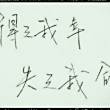 得之我幸
失之我命